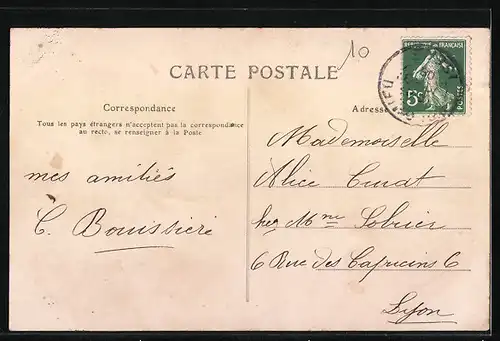 10
RÉPUBLIQUE FRANÇAISE
CARTE POSTALE
5c
POSTES
Correspondance
Adresse
Tous les pays étrangers n'acceptent pas la correspondance
au recto, se renseigner à la Poste
Mademoiselle
mes amitiés
Alice
C. Bouissière
chez Mme
6 Rue des Capucins 6
Lyon